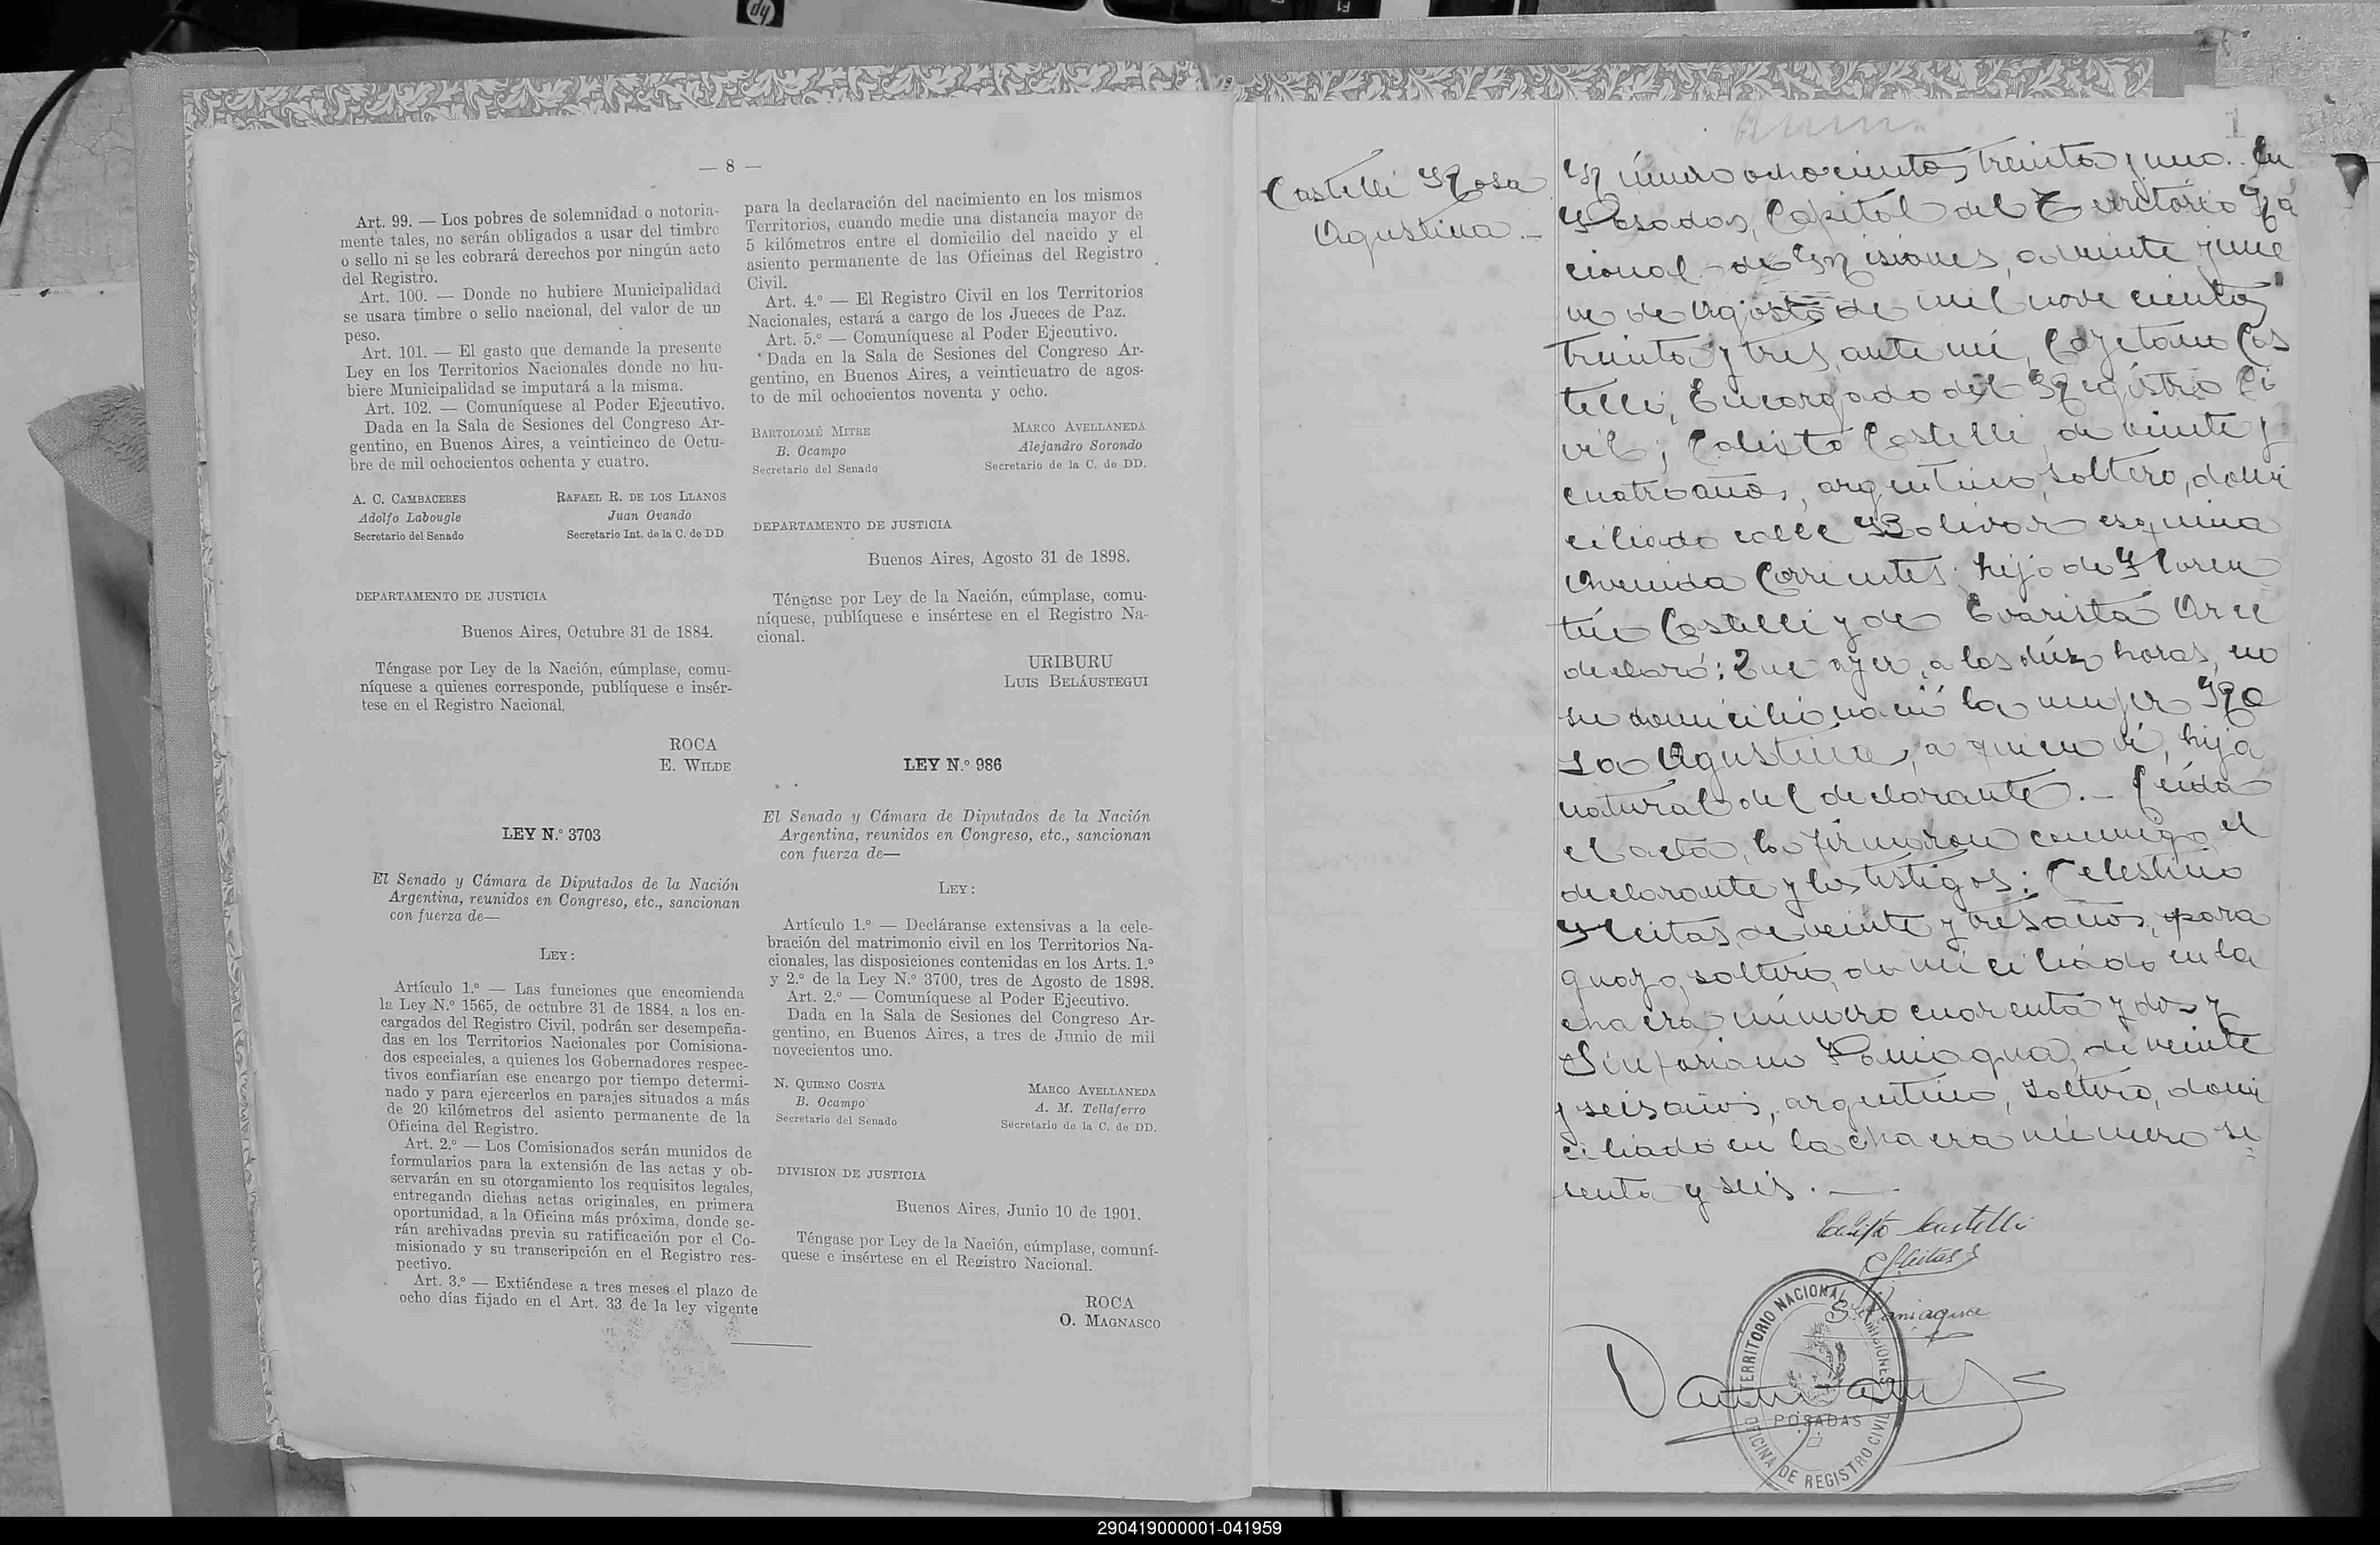 — 8 —
Art. 99. — Los pobres de solemnidad o notoria-
mente tales, no serán obligados a usar del timbre
o sello ni se les cobrará derechos por ningún acto
del Registro.
Art. 100. — Donde no hubiere Municipalidad
se usará timbre o sello nacional, del valor de un
peso.
Art. 101. — El gasto que demande la presente
Ley en los Territorios Nacionales donde no hu-
biere Municipalidad se imputará a la misma.
Art. 102. — Comuníquese al Poder Ejecutivo.
Dada en la Sala de Sesiones del Congreso Ar-
gentino, en Buenos Aires, a veinticinco de Octu-
bre de mil ochocientos ochenta y cuatro.
A. C. CAMBACERES
Adolfo Labougle
Secretario del Senado
RAFAEL R. DE LOS LLANOS
Juan Ovando
Secretario Int. de la C. de DD
DEPARTAMENTO DE JUSTICIA
Buenos Aires, Octubre 31 de 1884.
Téngase por Ley de la Nación, cúmplase, comu-
níquese a quienes corresponde, publíquese e insér-
tese en el Registro Nacional.
ROCA
E. WILDE
LEY N.º 3703
El Senado y Cámara de Diputados de la Nación
Argentina, reunidos en Congreso, etc., sancionan
con fuerza de—
LEY:
Artículo 1.º — Las funciones que encomienda
la Ley N.º 1565, de octubre 31 de 1884, a los en-
cargados del Registro Civil, podrán ser desempeña-
das en los Territorios Nacionales por Comisiona-
dos especiales, a quienes los Gobernadores respec-
tivos confiarían ese encargo por tiempo determi-
nado y para ejercerlos en parajes situados a más
de 20 kilómetros del asiento permanente de la
Oficina del Registro.
Art. 2.º — Los Comisionados serán munidos de
formularios para la extensión de las actas y ob-
servarán en su otorgamiento los requisitos legales,
entregando dichas actas originales, en primera
oportunidad, a la Oficina más próxima, donde se-
rán archivadas previa su ratificación por el Co-
misionado y su transcripción en el Registro res-
pectivo.
Art. 3.º — Extiéndese a tres meses el plazo de
ocho días fijado en el Art. 33 de la ley vigente
para la declaración del nacimiento en los mismos
Territorios, cuando medie una distancia mayor de
5 kilómetros entre el domicilio del nacido y el
asiento permanente de las Oficinas del Registro
Civil.
Art. 4.º — El Registro Civil en los Territorios
Nacionales, estará a cargo de los Jueces de Paz.
Art. 5.º — Comuníquese al Poder Ejecutivo.
Dada en la Sala de Sesiones del Congreso Ar-
gentino, en Buenos Aires, a veinticuatro de agos-
to de mil ochocientos noventa y ocho.
BARTOLOMÉ MITRE
B. Ocampo
Secretario del Senado
MARCO AVELLANEDA
Alejandro Sorondo
Secretario de la C. de DD.
DEPARTAMENTO DE JUSTICIA
Buenos Aires, Agosto 31 de 1898.
Téngase por Ley de la Nación, cúmplase, comu-
níquese, publíquese e insértese en el Registro Na-
cional.
URIBURU
LUIS BELÁUSTEGUI
LEY N.º 986
El Senado y Cámara de Diputados de la Nación
Argentina, reunidos en Congreso, etc., sancionan
con fuerza de—
LEY:
Artículo 1.º — Decláranse extensivas a la cele-
bración del matrimonio civil en los Territorios Na-
cionales, las disposiciones contenidas en los Arts. 1.º
y 2.º de la Ley N.º 3700, tres de Agosto de 1898.
Art. 2.º — Comuníquese al Poder Ejecutivo.
Dada en la Sala de Sesiones del Congreso Ar-
gentino, en Buenos Aires, a tres de Junio de mil
novecientos uno.
N. QUIRNO COSTA
B. Ocampo
Secretario del Senado
MARCO AVELLANEDA
A. M. Tellaferro
Secretario de la C. de DD.
DIVISION DE JUSTICIA
Buenos Aires, Junio 10 de 1901.
Téngase por Ley de la Nación, cúmplase, comuní-
quese e insértese en el Registro Nacional.
ROCA
O. MAGNASCO
1
Castelli Rosa
Agustina.—
Número ochocientos treinta y uno. En
Posadas, Capital del Territorio Na
cional de Misiones, a veinte y nue
ve de Agosto de mil novecientos
treinta y tres, ante mí, Cayetano Cas
telli, Encargado del Registro Ci
vil; Calixto Castelli, de veinte y
cuatro años, argentino, soltero, domi
ciliado calle Bolivar esquina
Avenida Corrientes hijo de Floren
tín Castelli y de Evarista Arce
declaró: Que ayer, a las diez horas, en
su domicilio nació la mujer Ro
sa Agustina, a quien ví, hija
natural del declarante.— Leída
el acta, la firmaron conmigo, el
declarante y los testigos: Celestino
Fleitas, de veinte y tres años, para
guayo, soltero, domiciliado en la
chacra número cuarenta y dos y
Sinforiano Paniagua, de veinte
y seis años, argentino, soltero, domi
ciliado en la chacra número se
senta y seis.—
Calixto Castelli
C Fleitas
S. Paniagua
TERRITORIO NACIONAL MISIONES
POSADAS
OFICINA DE REGISTRO CIVIL
290419000001-041959